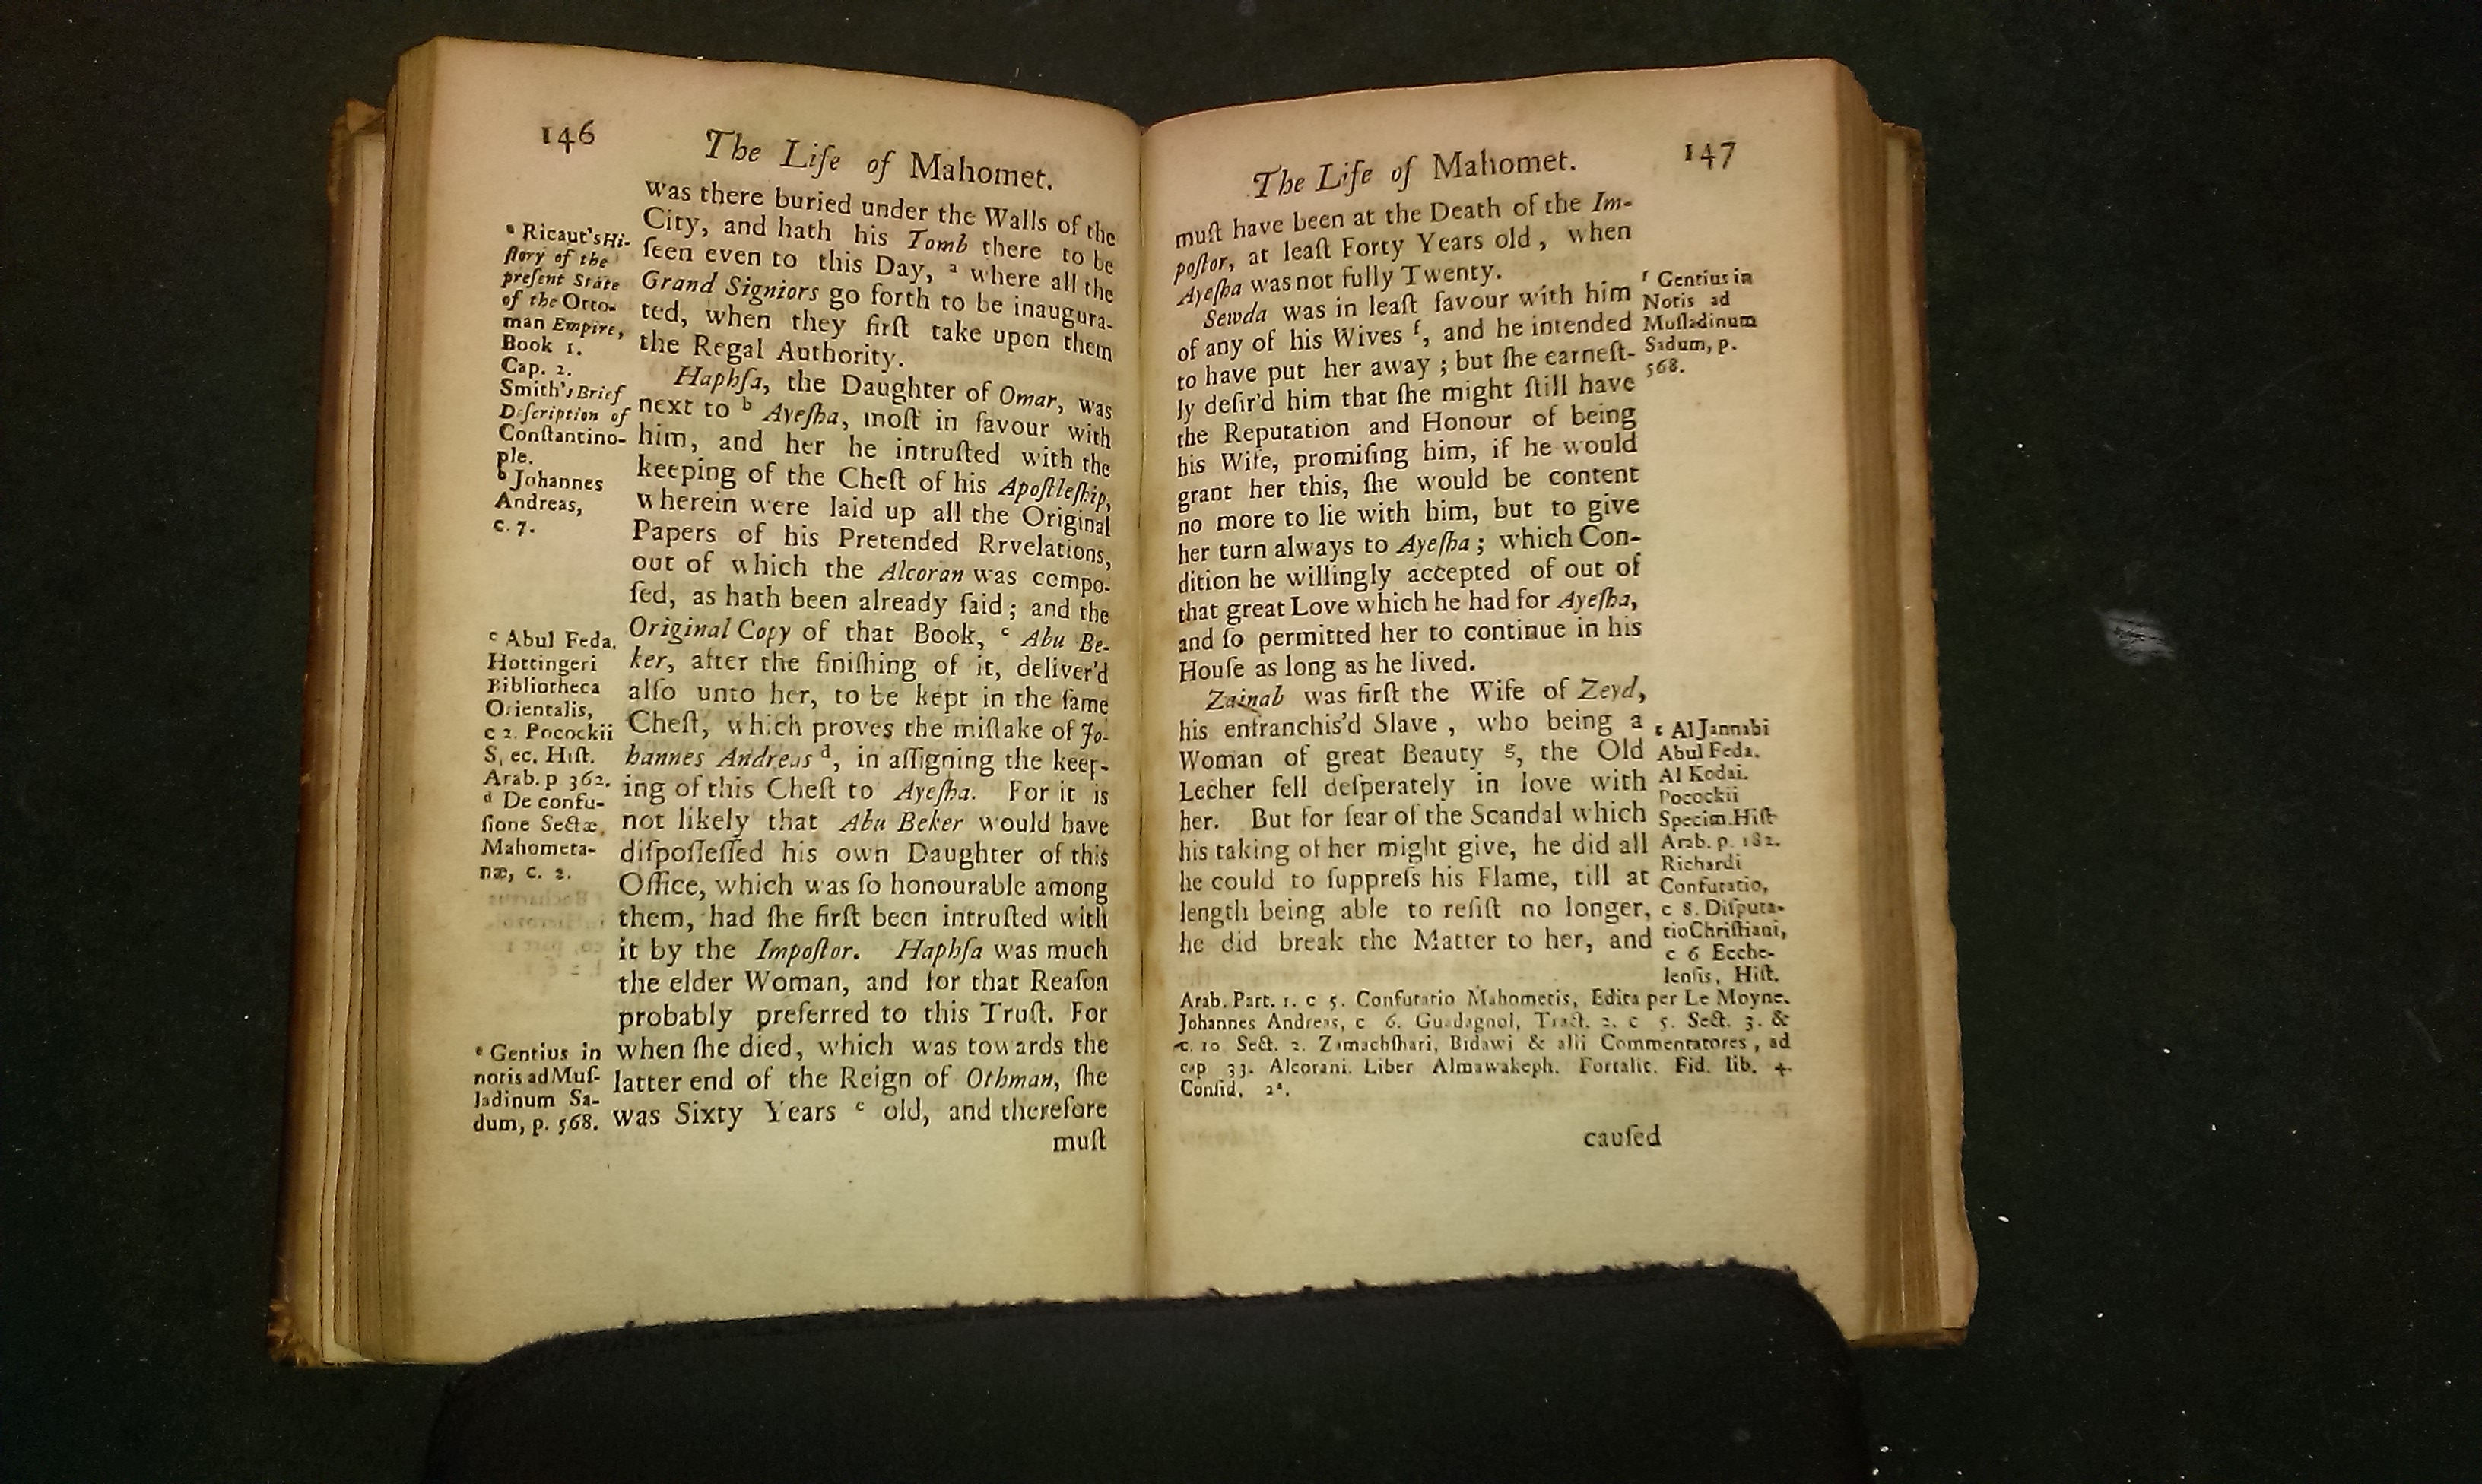 146
The Life of Mahomet.
was there buried under the Walls of the
City, and hath his Tomb there to be
ſeen even to this Day, ᵃ where all the
Grand Signiors go forth to be inaugura-
ted, when they firſt take upon them
the Regal Authority.
Haphſa, the Daughter of Omar, was
next to ᵇ Ayeſha, moſt in favour with
him, and her he intruſted with the
keeping of the Cheſt of his Apoſtleſhip,
wherein were laid up all the Original
Papers of his Pretended Rrvelations,
out of which the Alcoran was compo-
ſed, as hath been already ſaid; and the
Original Copy of that Book, ᶜ Abu Be-
ker, after the finiſhing of it, deliver'd
alſo unto her, to be kept in the ſame
Cheſt, which proves the miſtake of Jo-
hannes Andreas ᵈ, in aſſigning the keep-
ing of this Cheſt to Ayeſha. For it is
not likely that Abu Beker would have
diſpoſſeſſed his own Daughter of this
Office, which was ſo honourable among
them, had ſhe firſt been intruſted with
it by the Impoſtor. Haphſa was much
the elder Woman, and for that Reaſon
probably preferred to this Truſt. For
when ſhe died, which was towards the
latter end of the Reign of Othman, ſhe
was Sixty Years ᵉ old, and therefore
muſt
ᵃ Ricaut's Hi-
ſtory of the
preſent State
of the Otto-
man Empire,
Book 1.
Cap. 2.
Smith's Brief
Deſcription of
Conſtantino-
ple.
ᵇ Johannes
Andreas,
c. 7.
ᶜ Abul Feda.
Hottingeri
Bibliotheca
Orientalis,
c 2. Pocockii
Spec. Hiſt.
Arab. p 362.
ᵈ De confu-
ſione Sectæ
Mahometa-
næ, c. 2.
ᵉ Gentius in
notis ad Muſ-
ladinum Sa-
dum, p. 568.
The Life of Mahomet.
147
muſt have been at the Death of the Im-
poſtor, at leaſt Forty Years old, when
Ayeſha was not fully Twenty.
Sewda was in leaſt favour with him
of any of his Wives ᶠ, and he intended
to have put her away; but ſhe earneſt-
ly deſir'd him that ſhe might ſtill have
the Reputation and Honour of being
his Wife, promiſing him, if he would
grant her this, ſhe would be content
no more to lie with him, but to give
her turn always to Ayeſha; which Con-
dition he willingly accepted of out of
that great Love which he had for Ayeſha,
and ſo permitted her to continue in his
Houſe as long as he lived.
Zainab was firſt the Wife of Zeyd,
his enfranchis'd Slave, who being a
Woman of great Beauty ᵍ, the Old
Lecher fell deſperately in love with
her. But for fear of the Scandal which
his taking of her might give, he did all
he could to ſuppreſs his Flame, till at
length being able to reſiſt no longer,
he did break the Matter to her, and
ᶠ Gentius in
Notis ad
Muſladinum
Sadum, p.
568.
ᵍ Al Jannabi
Abul Feda.
Al Kodai.
Pocockii
Specim. Hiſt
Arab. p. 182.
Richardi
Confutatio,
c 8. Diſputa-
tio Chriſtiani,
c 6 Ecche-
lenſis, Hiſt.
Arab. Part. 1. c 5. Confutatio Mahometis, Edita per Le Moyne.
Johannes Andreas, c 6. Guadagnol, Tract. 2. c 5. Sect. 3. &
c. 10 Sect. 2. Zamachſhari, Bidawi & alii Commentatores, ad
cap 33. Alcorani. Liber Almawakeph. Fortalit. Fid. lib. 4.
Conſid. 2ᵃ.
cauſed